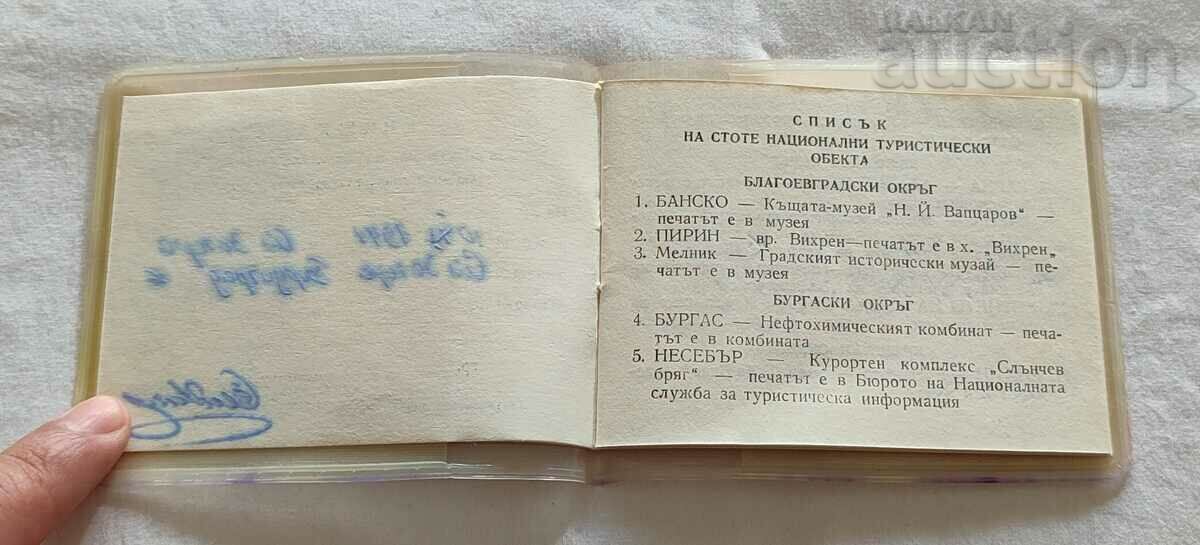 BALKAN
auction
СПИСЪК
НА СТОТЕ НАЦИОНАЛНИ ТУРИСТИЧЕСКИ
ОБЕКТА
БЛАГОЕВГРАДСКИ ОКРЪГ
1. БАНСКО — Къщата-музей „Н. Й. Вапцаров“ —
печатът е в музея
2. ПИРИН — вр. Вихрен—печатът е в х. „Вихрен„
3. Мелник — Градският исторически музай — пе-
чатът е в музея
БУРГАСКИ ОКРЪГ
4. БУРГАС — Нефтохимическият комбинат — печа-
тът е в комбината
5. НЕСЕБЪР — Курортен комплекс „Слънчев
бряг“ — печатът е в Бюрото на Националната
служба за туристическа информация